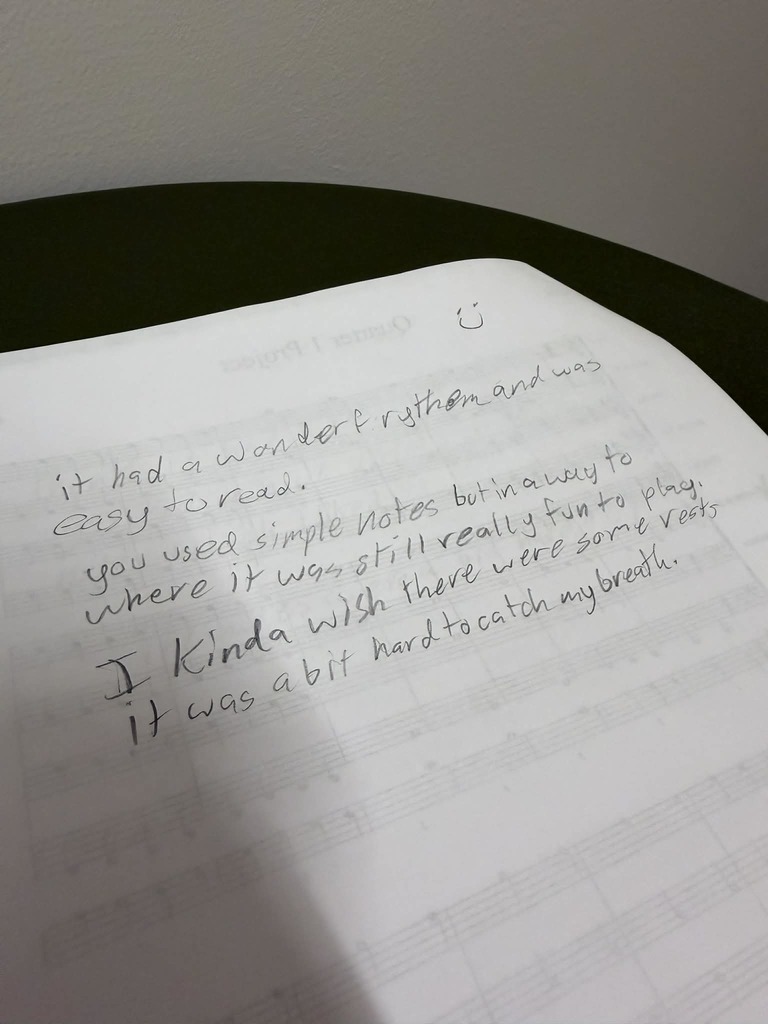 Quarter 1 Project
it had a wonderf rythem and was
easy to read.
you used simple notes but in a way to
where it was still really fun to play.
I kinda wish there were some rests
it was a bit hard to catch my breath.